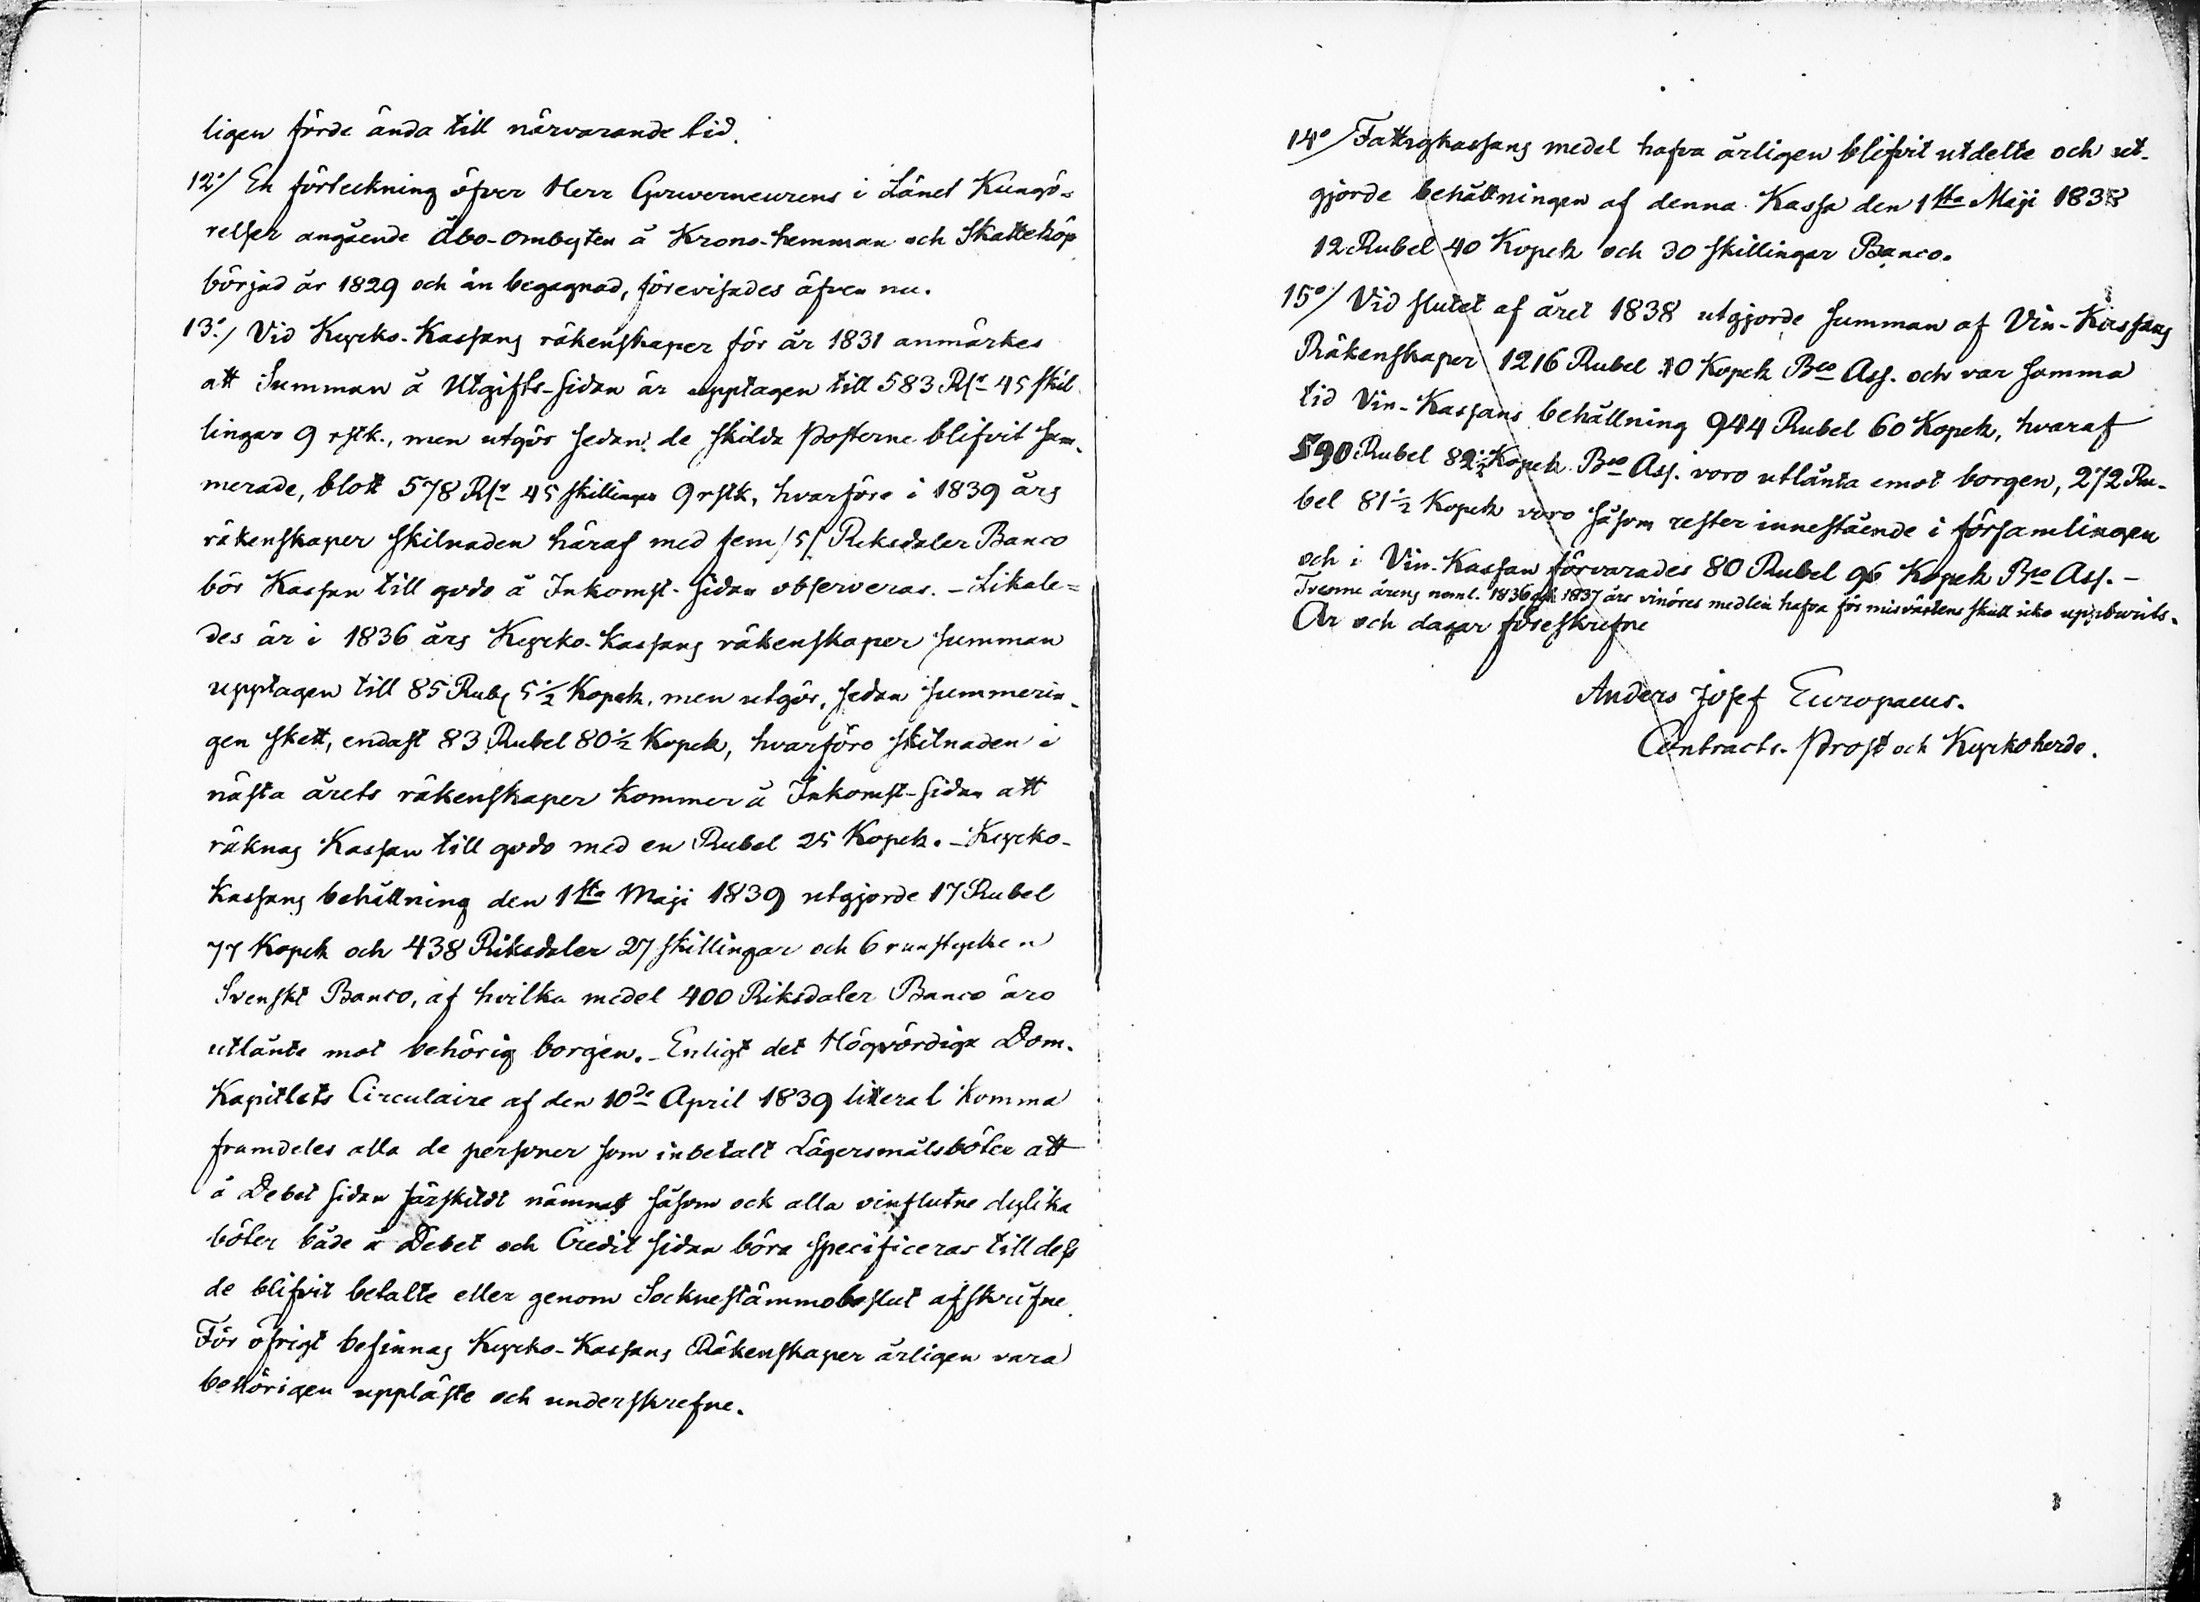 ligen förde ända till närvarande tid.
12:o/ En förteckning öfver Herr Gouverneurens i Länet Kungö=
relser angående Åbo-ombyten å Krono-hemman och Skatteköp
började år 1829 och än begagnad, förevisades äfven nu.
13:o/ Vid Kyrko-Kassans räkenskaper för år 1831 anmärkes
att Summan å Utgifts-sidan är upptagen till 583 Rdr 45 skil
lingar 9 rstk., men utgör sedan de skilda posterne blifvit sum-
merade, blott 578 Rdr 45 skillingar 9 rstk, hvarföre i 1839 års
räkenskaper skilnaden häraf med fem /5/ Riksdaler Banco
bör Kassan till godo å Inkomst-sidan observeras. - Likale=
des är i 1836 års Kyrko-Kassans räkenskaper summan
upptagen till 85 Rub. 5½ Kopek, men utgör, sedan summerin-
gen skett, endast 83 Rubel 80½ Kopek, hvarföre skilnaden i
nästa årets räkenskaper kommer å Inkomst-sidan att
räknas Kassan till godo med en Rubel 25 Kopek. - Kyrko-
Kassans behållning den 1sta Maji 1839 utgjorde 17 Rubel
77 Kopek och 438 Riksdaler 27 skillingar och 6 runstycken
Svenskt Banco, af hvilka medel 400 Riksdaler Banco äro
utlånte mot behörig borgen. - Enligt det Högvördiga Dom-
Kapitlets Circulaire af den 10de April 1839 litera l komma
framdeles alla de personer som inbetalt Lägersmålsböter att
å Debet sidan särskildt nämnas såsom ock alla oinflutne dylika
böter både å Debet och Credit sidan böra specificeras till dess
de blifvit betalte eller genom Sockne stämmobeslut afskrifne.
För öfrigt befinnas Kyrko-Kassans Räkenskaper årligen vara
behörigen uppläste och underskrefne.
14:o/ Fattigkassans medel hafva årligen blifvit utdelte och ut-
gjorde behållningen af denna Kassa den 1sta Maji 1838
12 Rubel 40 Kopek och 30 skillingar Banco.
15:o/ Vid slutet af året 1838 utgjorde summan af Vin-Kassans
Räkenskaper 1216 Rubel 10 Kopek Bco Ass. och var samma
tid Vin-Kassans behållning 944 Rubel 60 Kopek, hvaraf
590 Rubel 82½ Kopek Bco Ass. voro utlånta emot borgen, 272 Ru-
bel 81½ Kopek voro såsom rester innestående i församlingen
och i Vin-Kassan förvarades 80 Rubel 96 Kopek Bco Ass. -
Tvenne årens neml. 1836 och 1837 års vinöres medlen hafva för missvextens skull icke uppburits.
År och dagar föreskrefne
Anders Josef Europaeus.
Contracts-Prost och Kyrkoherde.